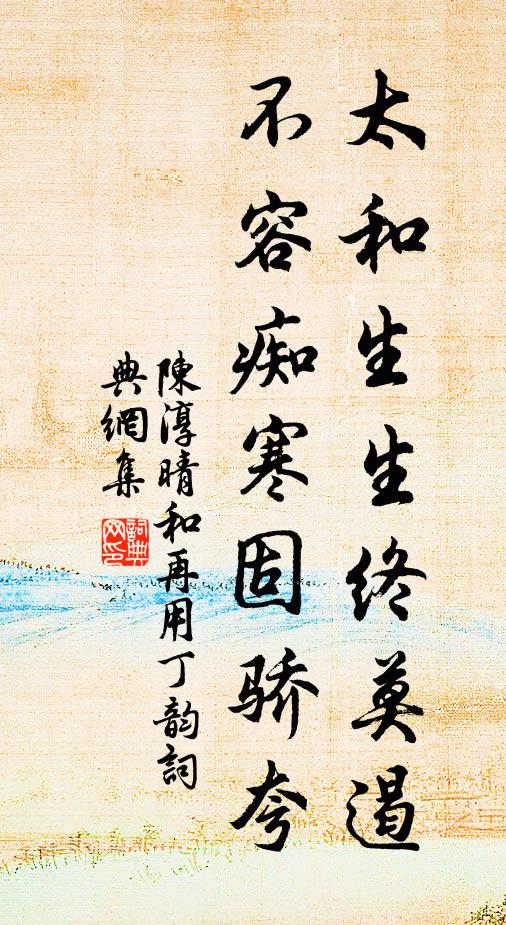 太和生生终莫遏
不容痴寒固骄夸
陳淳晴和再用丁韵詞
典網集
詞典
网印